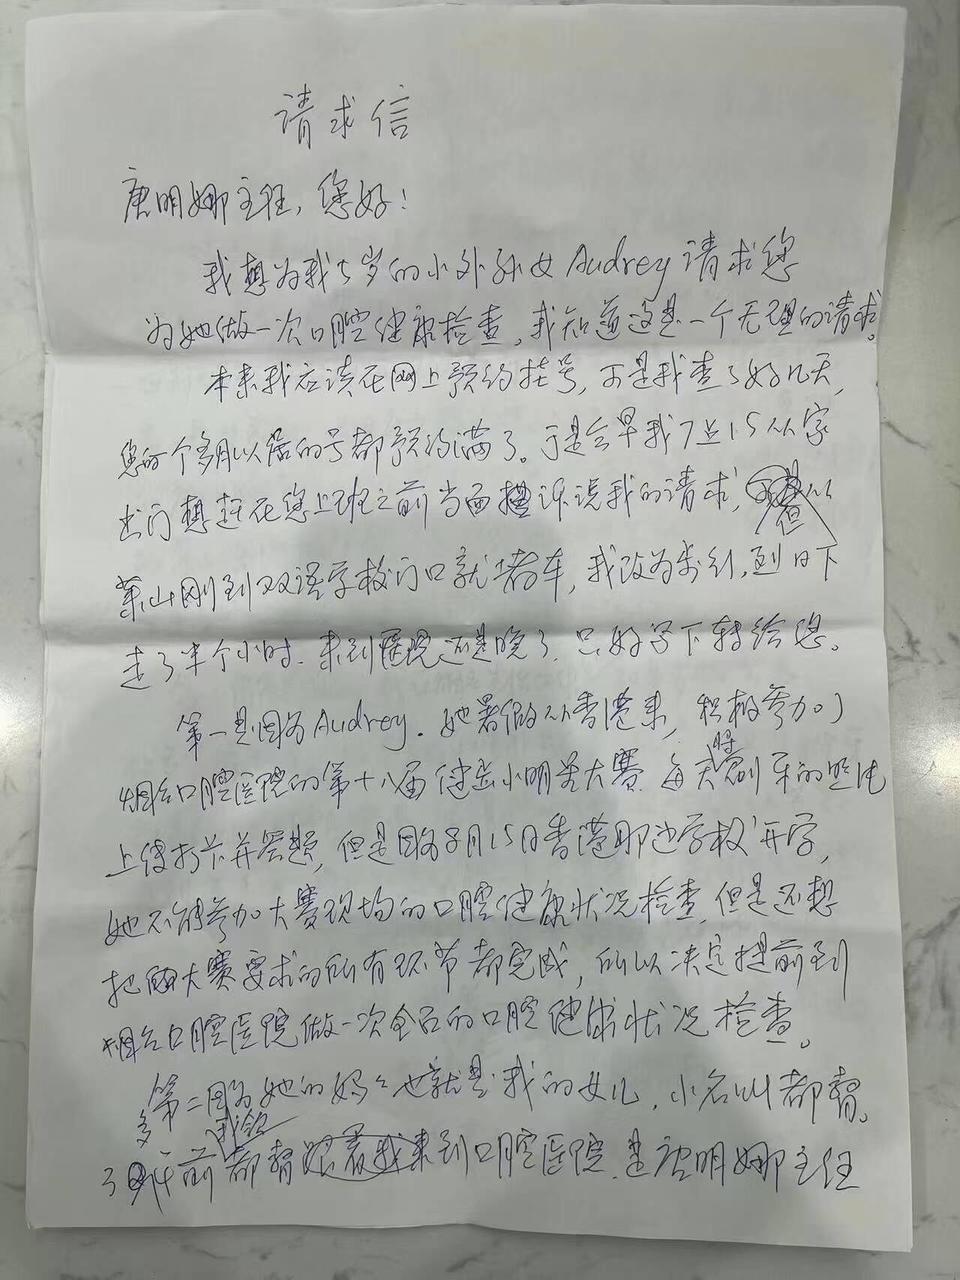 请求信
唐明娜主任，您好！
我想为我5岁的小外孙女Audrey请求您
为她做一次口腔健康检查，我知道这是一个无理的请求。
本来我应该在网上预约挂号，可是我查了好几天，
您的个多月以后的号都预约满了。于是今早我7点15从家
出门想赶在您上班之前当面诉说我的请求，但从
莱山刚到双语学校门口就堵车，我改为步行，烈日下
走了半个小时，来到医院还是晚了，只好写下转给您。
第一是因为Audrey，她暑假从香港来，积极参加
烟台口腔医院的第十八届健齿小明星大赛，每天将刷牙的照片
上传打卡并答题，但是因为8月15日香港那边学校开学，
她不能参加大赛现场的口腔健康状况检查，但是还想
把大赛要求的所有环节都完成，所以决定提前到
烟台口腔医院做一次全面的口腔健康状况检查。
第二因为她的妈妈也就是我的女儿，小名叫都督。
多年前我领都督来到口腔医院，是唐明娜主任